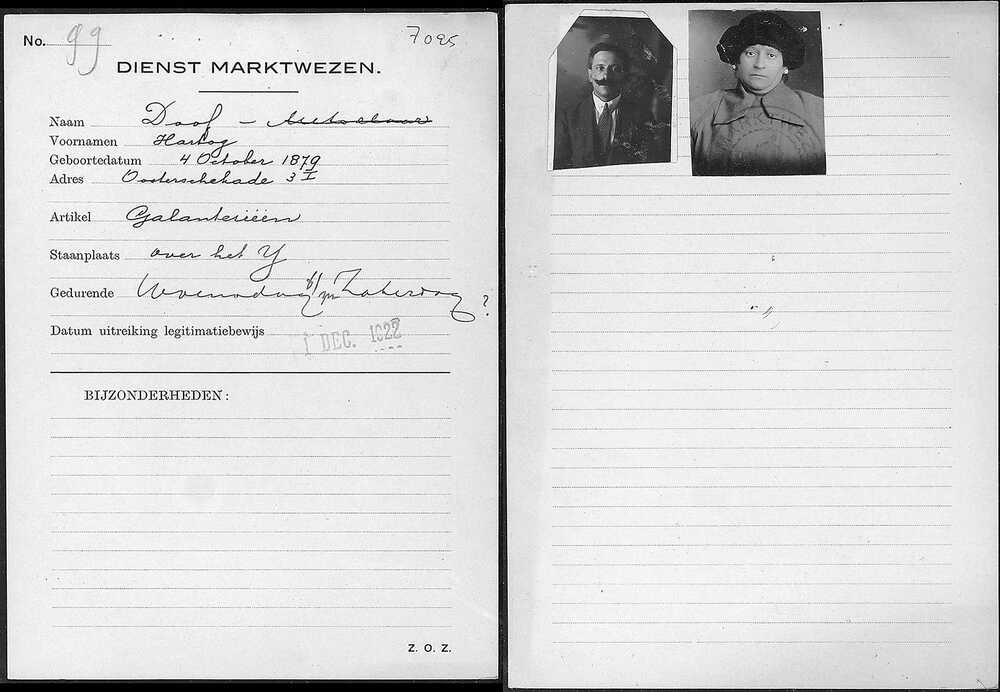 No. 99 7095
DIENST MARKTWEZEN.
Naam Doof -
Voornamen Hartog
Geboortedatum 4 October 1879
Adres Oosterschekade 3 I
Artikel Galanterieën
Staanplaats over het Y
Gedurende Woensdag t/m Zaterdag ?
Datum uitreiking legitimatiebewijs 1 DEC. 1922
BIJZONDERHEDEN:
Z. O. Z.